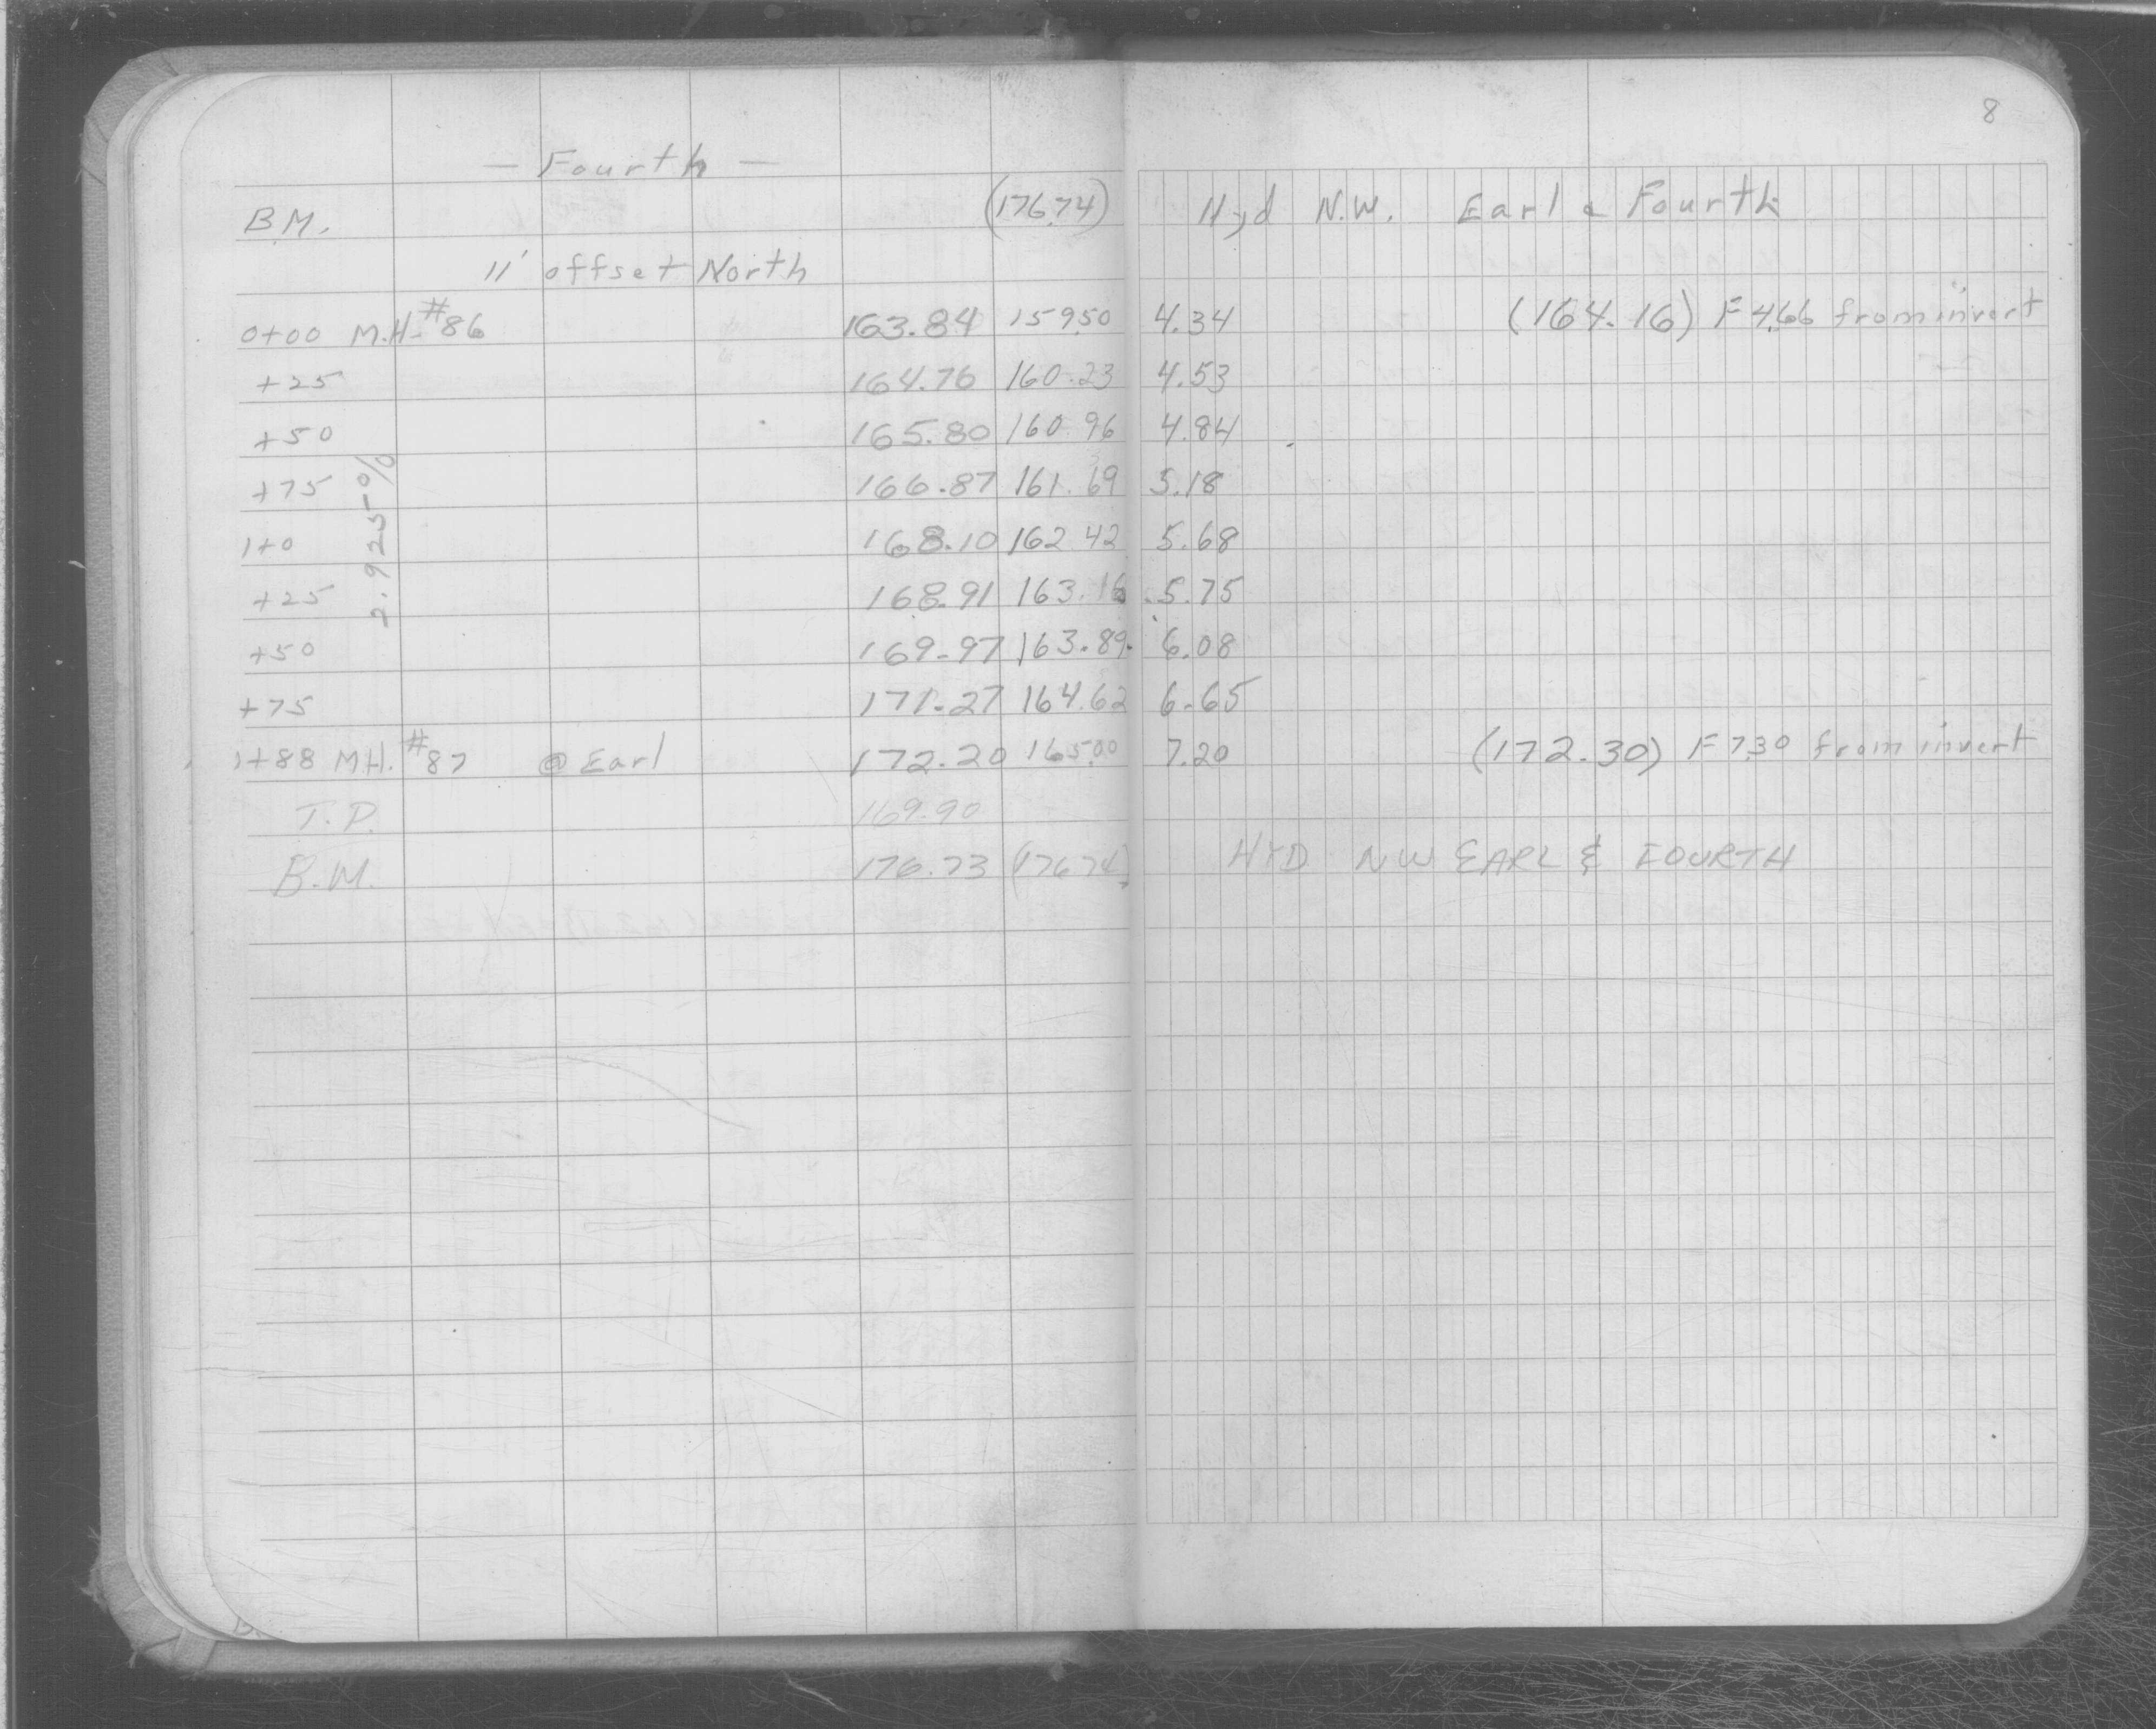 8
— Fourth —
B.M. (176.74) Hyd N.W. Earl & Fourth
11' offset North
0+00 M.H. #86 163.84 159.50 4.34 (164.16) F 4.66 from invert
+25 164.76 160.23 4.53
+50 165.80 160.96 4.84
+75 166.87 161.69 5.18
1+0 168.10 162.42 5.68
+25 168.91 163.16 5.75
+50 169.97 163.89 6.08
+75 171.27 164.62 6.65
2.925%
1+88 M.H. #87 @ Earl 172.20 165.00 7.20 (172.30) F 7.30 from invert
T.P. 169.90
B.M. 176.73 (176.74) HYD NW EARL & FOURTH